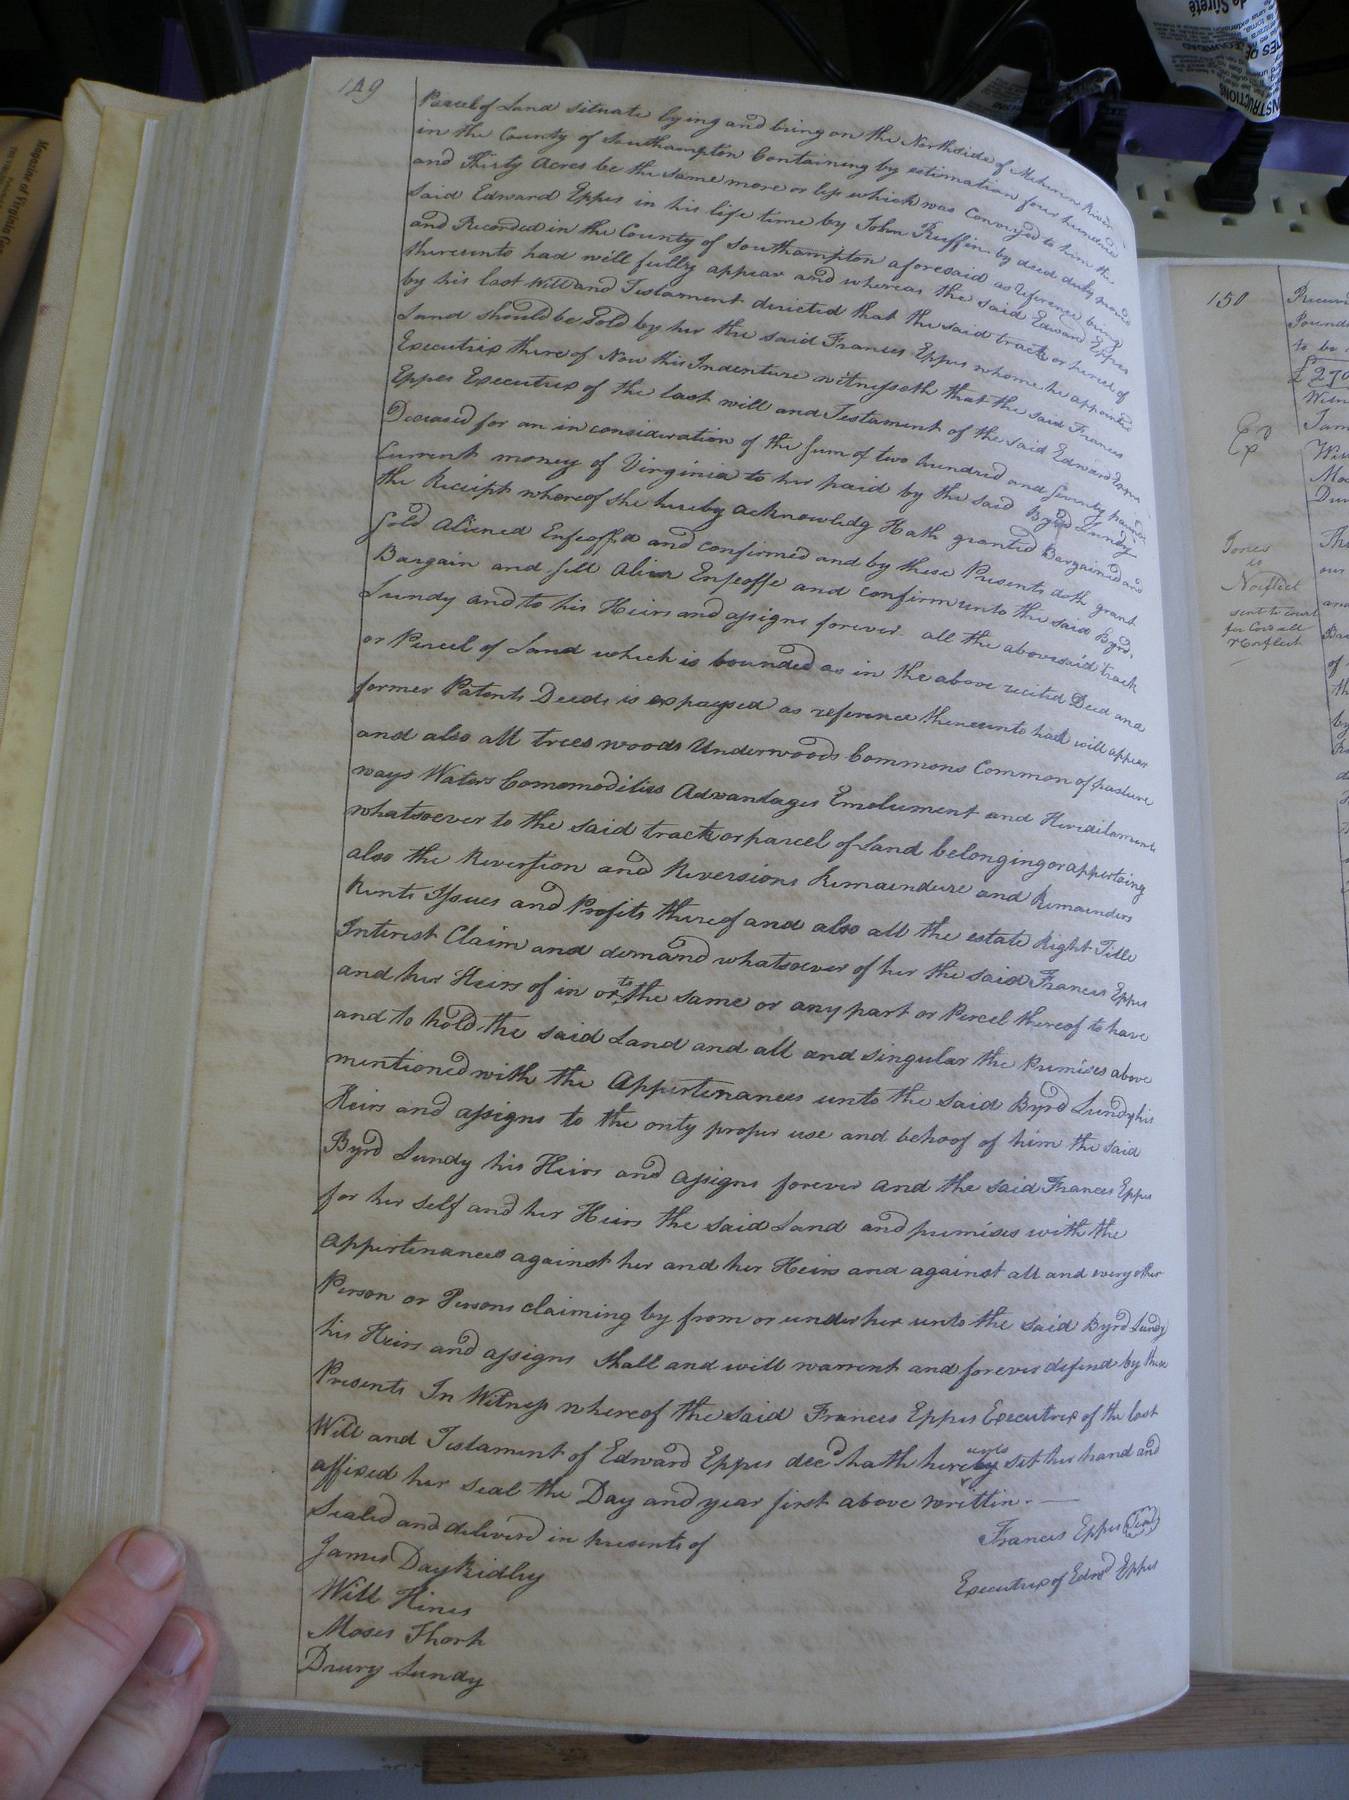 149
Parcel of Land situate lying and being on the Northside of Meherrin River
in the County of Southampton Containing by estimation four hundred
and Thirty Acres be the same more or less which was Conveyed to him the
said Edward Eppes in his life time by John Ruffin by deed duly
and Recorded in the County of Southampton aforesaid as reference being
thereunto had will fully appear and whereas the said Edward Eppes
by his last Will and Testament directed that the said track or parcel of
Land should be Sold by her the said Frances Eppes whome he appointed
Executrix there of Now this Indenture witnesseth that the said Frances
Eppes Executrix of the last will and Testament of the said Edward Eppes
Deceased for an in consideration of the sum of two hundred and seventy pounds
Current money of Virginia to her paid by the said Byrd Lundy
the Receipt whereof she hereby acknowledg Hath granted Bargained and
Sold Aliened Enfeoffd and confirmed and by these Presents doth grant
Bargain and sell Alien Enfeoffe and confirm unto the said Byrd
Lundy and to his Heirs and assigns forever all the abovesaid track
or Parcel of Land which is bounded as in the above recited Deed and
former Patents Deeds is expaysed as reference thereunto had will appear
and also all trees woods Underwoods Commons Common of pasture
ways Waters Comomodities Advandages Emolument and Hereditaments
whatsoever to the said track or parcel of Land belonging or appertaing
also the Reversion and Reversions Remaindure and Remainders
Rents Issues and Profits thereof and also all the estate Right Title
Interest Claim and demand whatsoever of her the said Frances Eppes
and her Heirs of in or to the same or any part or Percel thereof to have
and to hold the said Land and all and singular the Premises above
mentioned with the Appertenances unto the said Byrd Lundy his
Heirs and assigns to the only proper use and behoof of him the said
Byrd Lundy his Heirs and assigns forever and the said Frances Eppes
for her self and her Heirs the said Land and premises with the
Appertenances against her and her Heirs and against all and every other
Person or Persons claiming by from or under her unto the said Byrd Lundy
his Heirs and assigns shall and will warrent and forever defend by these
Presents In Witness whereof the said Frances Eppes Executrix of the last
Will and Testament of Edward Eppes decd hath hereunto set her hand and
affixed her seal the Day and year first above written.
Sealed and deliverd in presents of
Frances Eppes (Seal)
James Day Ridley
Executrix of Edwd Eppes
Will Hines
Moses Thorh
Drury Lundy
150
to be
£270
Ex
Jones
to
Norfleet
sent to court
Magazine of Virginia
INSTRUCTIONS
de Sûreté